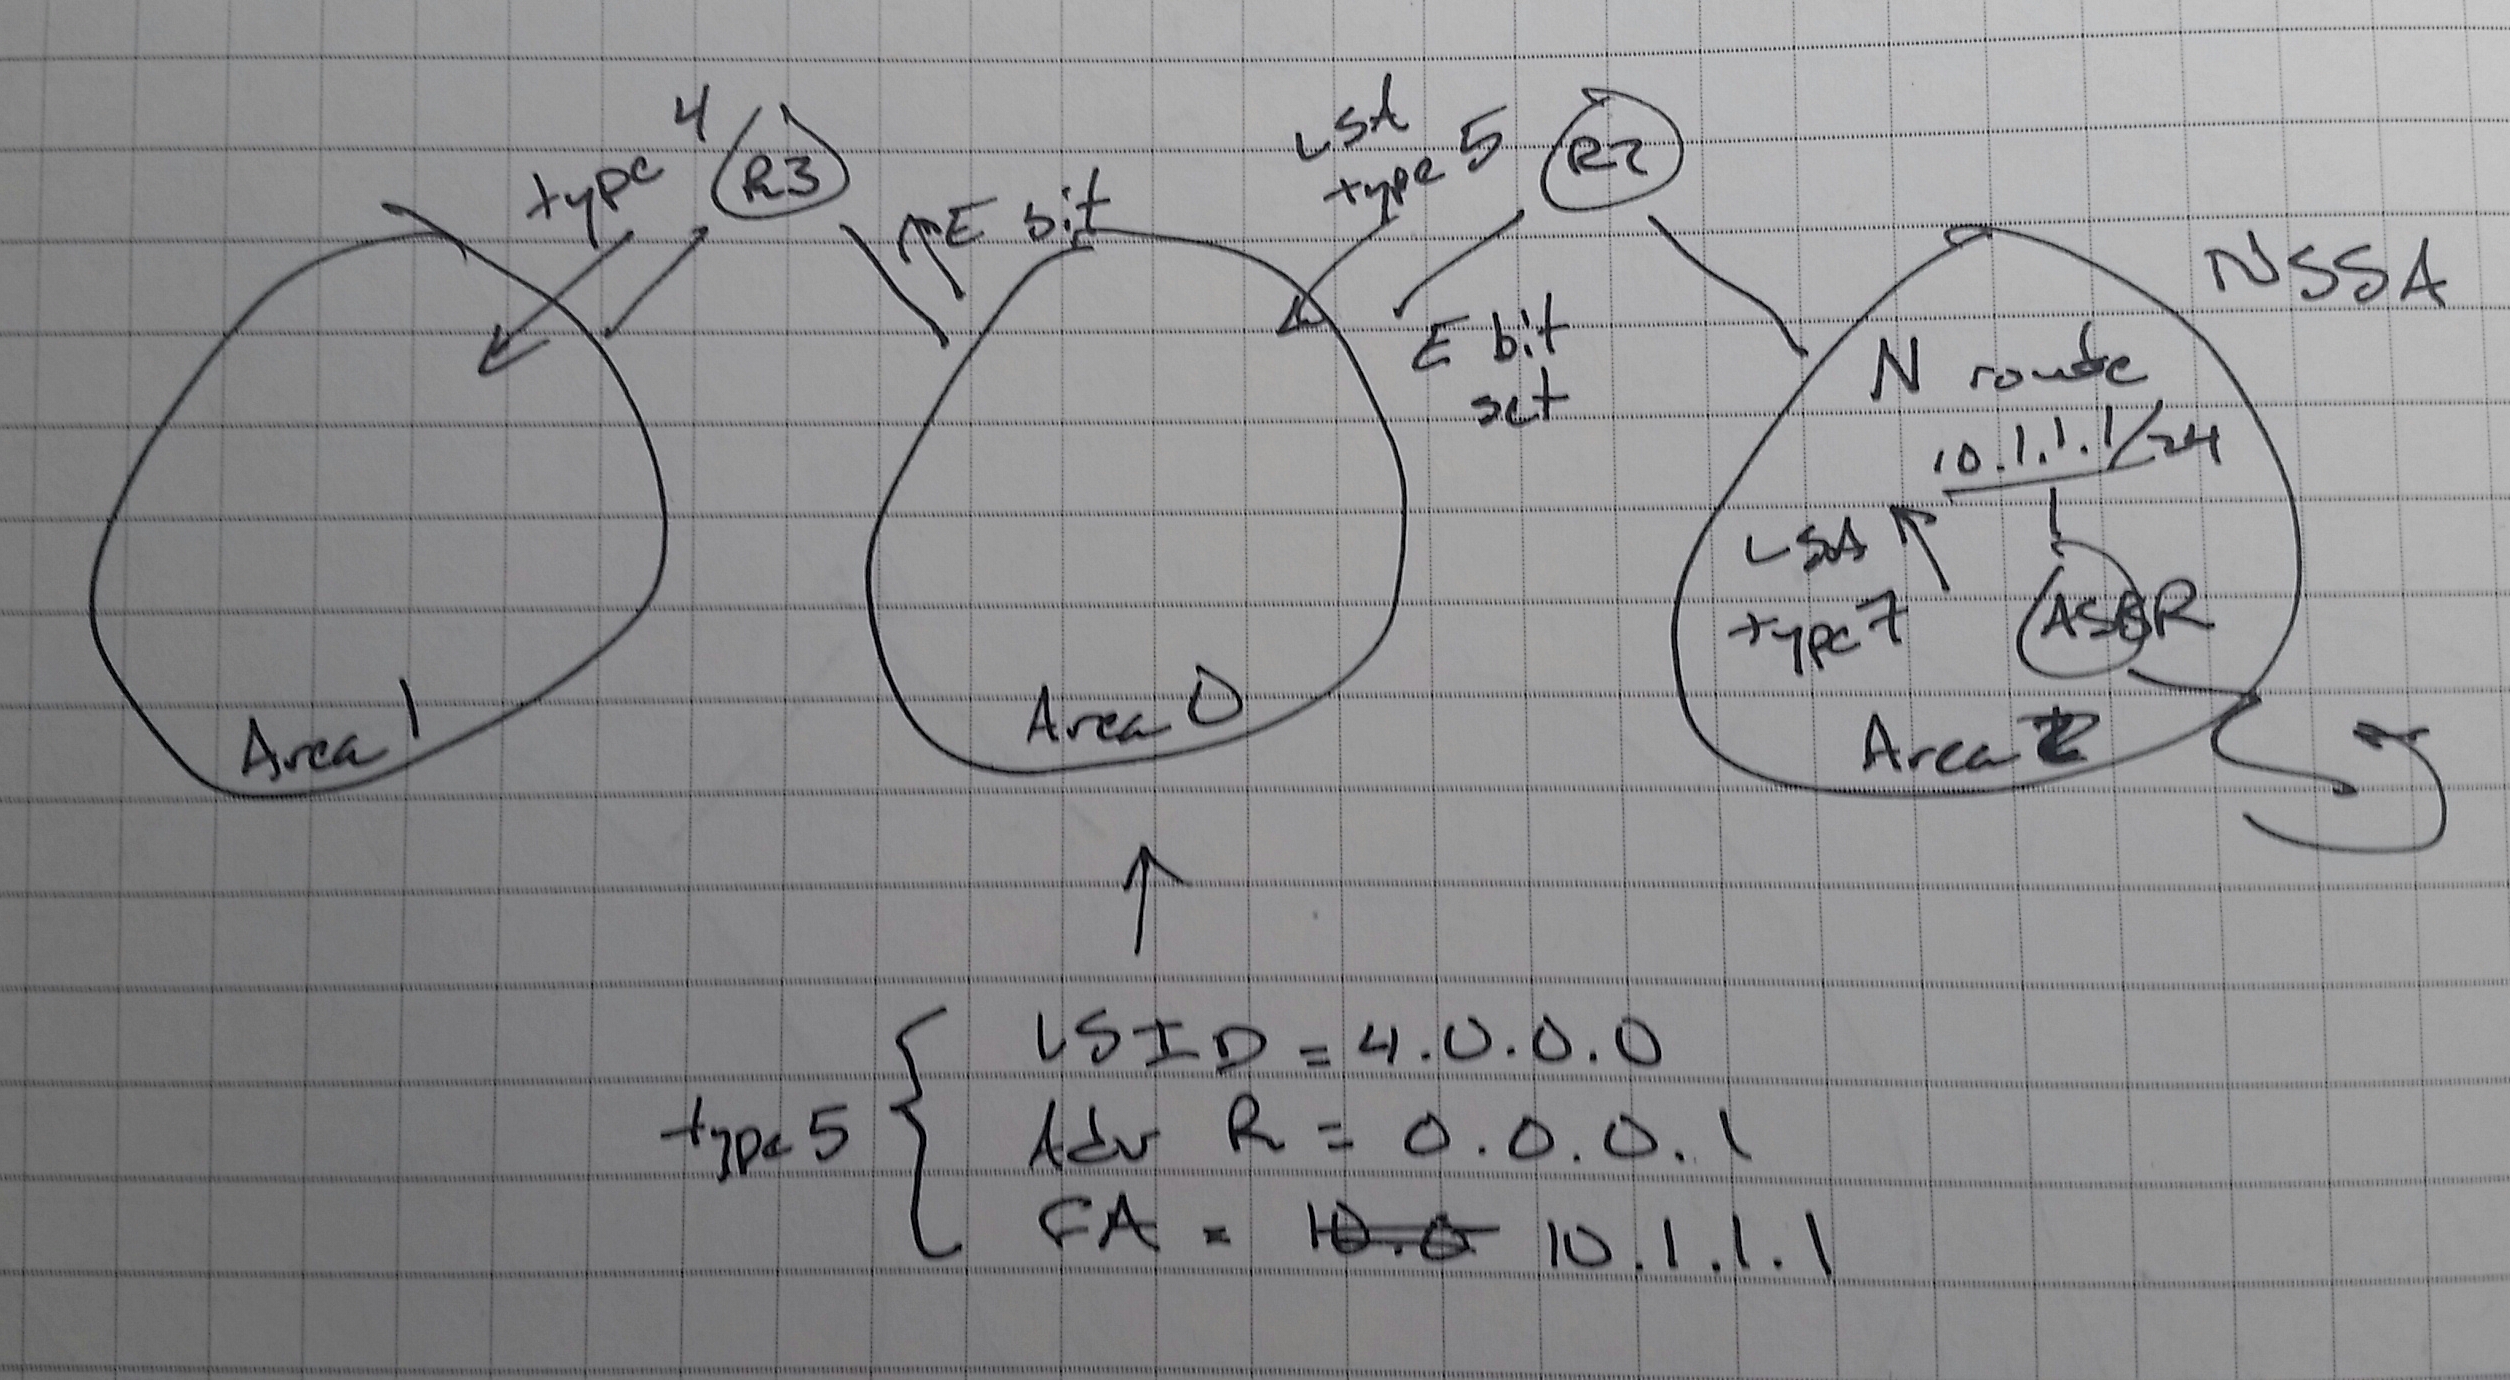 type 4
R3
E bit
LSA
type 5
R2
E bit
set
NSSA
N route
10.1.1.1/24
LSA
type 7
ASBR
Area 1
Area 0
Area 2
type 5
LSID = 4.0.0.0
Adv R = 0.0.0.1
FA = 10.0 10.1.1.1